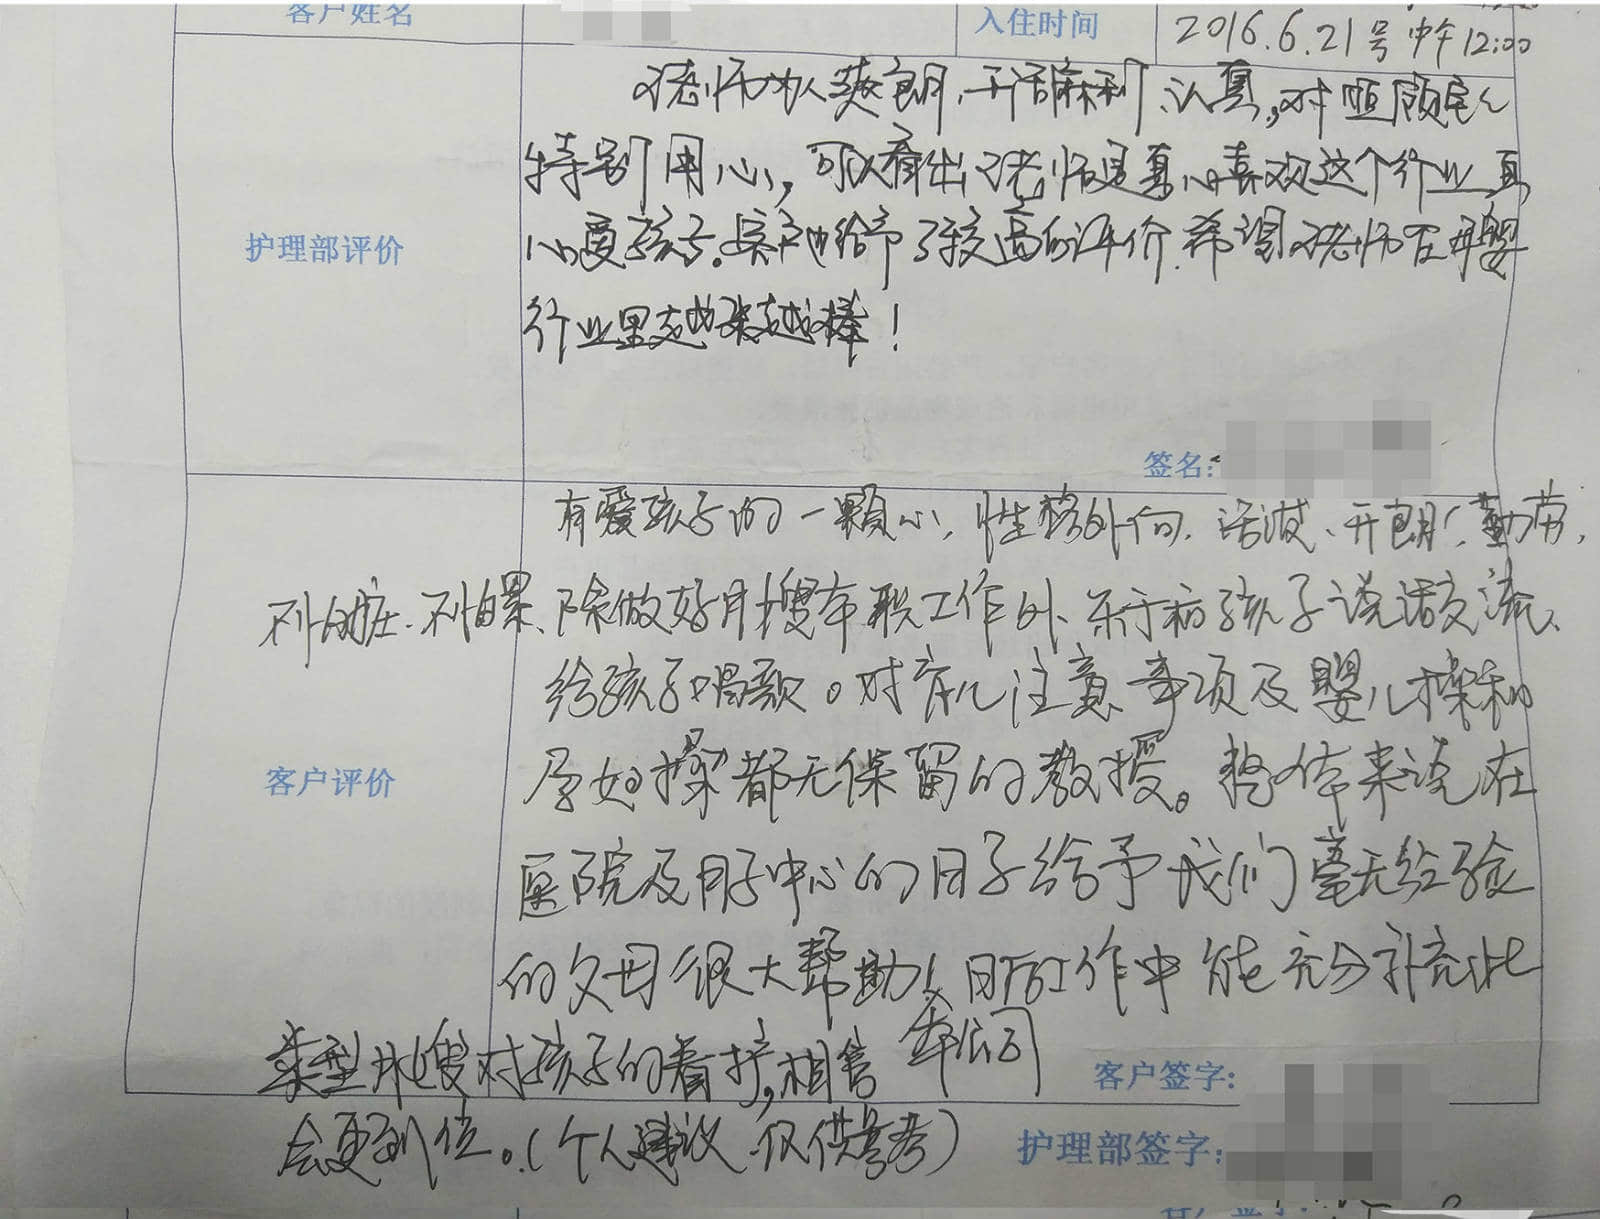 客户姓名
入住时间
2016.6.21号中午12:00
老师为人爽朗,干活麻利、认真,对照顾宝宝
特别用心,可以看出老师是真心喜欢这个行业真
心爱孩子。客户也给予了较高的评价.希望老师在母婴
行业里越来越棒!
护理部评价
签名:
有爱孩子的一颗心,性格外向.活泼、开朗、勤劳,
不怕脏.不怕累、除做好月嫂本职工作外、乐于和孩子说话交流、
给孩子唱歌。对育儿注意事项及婴儿操和
孕妇操都无保留的教授。整体来说在
医院及月子中心的日子给予我们毫无经验
的父母很大帮助,日后工作中能充分补充此
类型月嫂对孩子的看护,相信 本公司
会更到位。(个人建议.仅供参考)
客户评价
客户签字:
护理部签字: